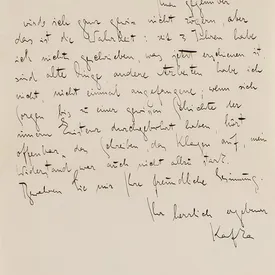 mir gegenüber
würde ich ganz gewiss nicht zögern, aber
das ist die Wahrheit: seit 3 Jahren habe
ich nichts geschrieben, was jetzt erschienen ist
sind alte Dinge, andere Arbeiten habe ich
nicht, nicht einmal angefangene; wenn sich
Sorgen bis zu einer gewissen Schichte der
innern Existenz durchgebohrt haben, hört
offenbar das Schreiben und Klagen auf, mein
Widerstand war auch nicht allzu stark.
Bewahren Sie mir Ihre freundliche Gesinnung.
Ihr herzlich ergebener
Kafka